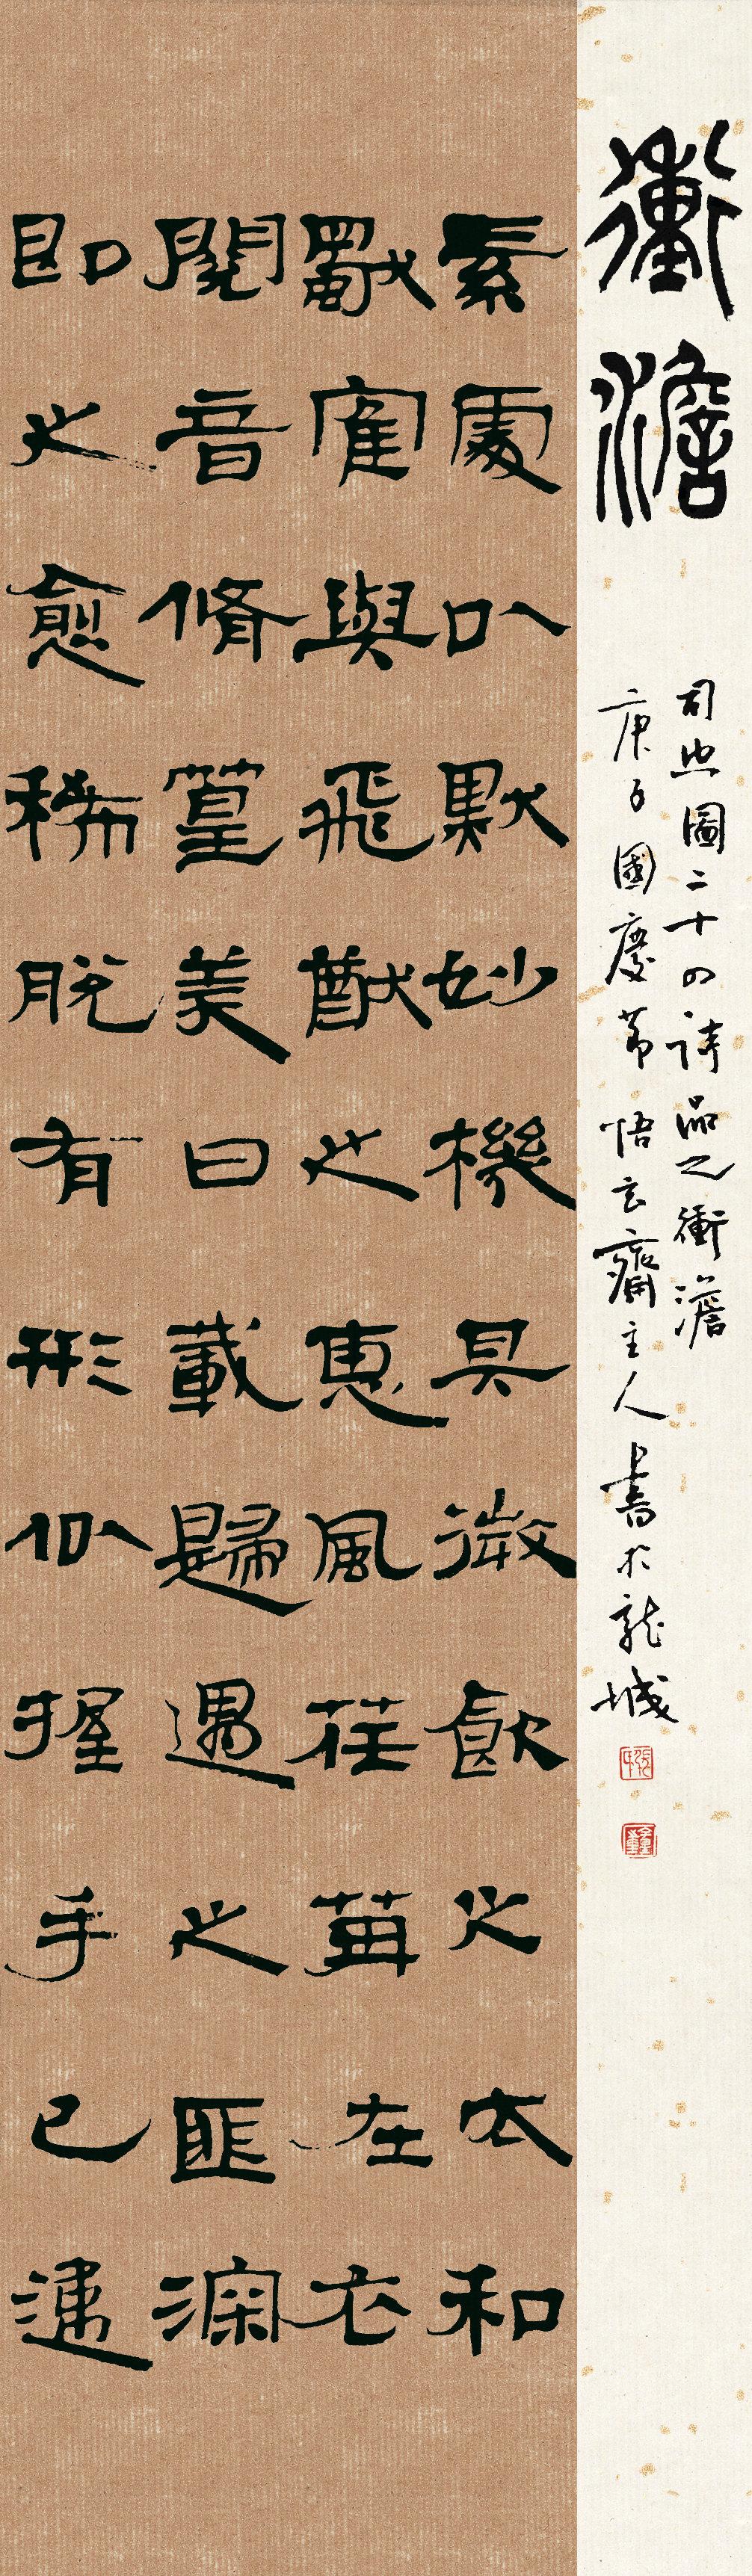 衝澹
司空圖二十四詩品之衝澹
庚子國慶節悟玄齋主人書於龍城
素處以默妙機其微飲之太和
獨寉與飛猶之惠風荏苒在衣
閱音脩篁美曰載歸遇之匪深
即之愈稀脫有形似握手已違